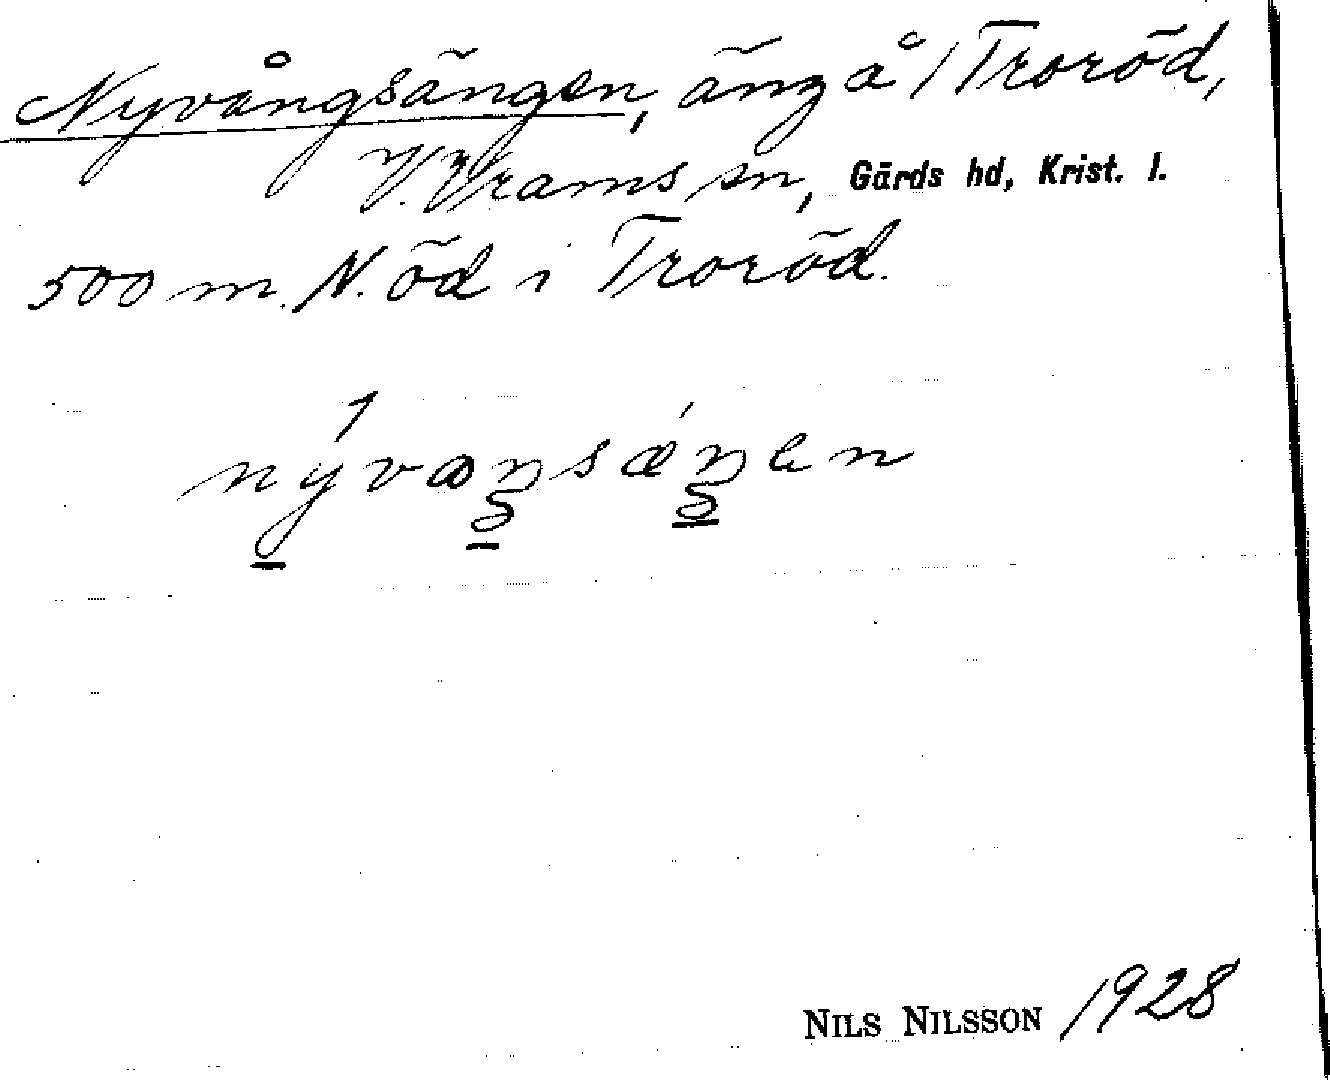 Nyvångsängen, äng å 1 Troröd,
V. Vrams sn, Gärds hd, Krist. l.
500 m. N. öd i Troröd.
nývaŋsǽŋen
NILS NILSSON 1928